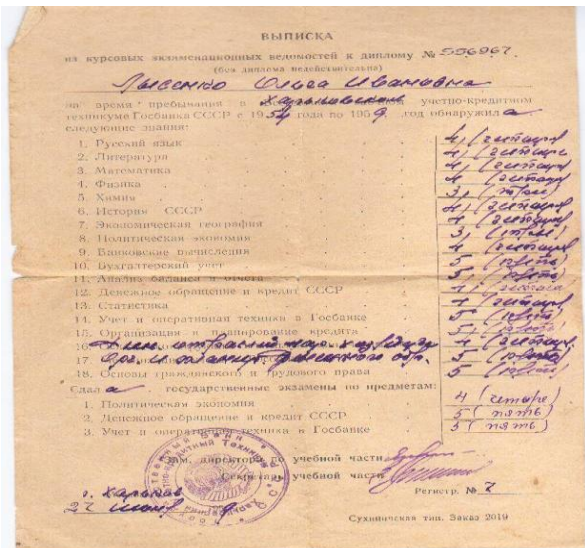 ВЫПИСКА
из курсовых экзаменационных ведомостей к диплому № 556967
(без диплома недействительна)
Лысенко Ольга Ивановна
на время пребывания в Харьковском учетно-кредитном
техникуме Госбанка СССР с 1954 года по 1959 год обнаружила
следующие знания:
1. Русский язык 4 (четыре)
2. Литература 4 (четыре)
3. Математика 4 (четыре)
4. Физика 4 (четыре)
5. Химия 3 (три)
6. История СССР 4 (четыре)
7. Экономическая география 4 (четыре)
8. Политическая экономия 3 (три)
9. Банковские вычисления 4 (четыре)
10. Бухгалтерский учет 5 (пять)
11. Анализ баланса и отчета 5 (пять)
12. Денежное обращение и кредит СССР 4 (четыре)
13. Статистика 4 (четыре)
14. Учет и оперативная техника в Госбанке 5 (пять)
15. Организация и планирование кредита 5 (пять)
16. 4 (четыре)
17. 5 (пять)
18. Основы гражданского и трудового права 5 (пять)
Сдала государственные экзамены по предметам:
1. Политическая экономия 4 (четыре)
2. Денежное обращение и кредит СССР 5 (пять)
3. Учет и оперативная техника в Госбанке 5 (пять)
Зам. директора по учебной части
Секретарь учебной части
Регистр. № 7
г. Харьков
27
Сухиничская тип. Заказ 2019